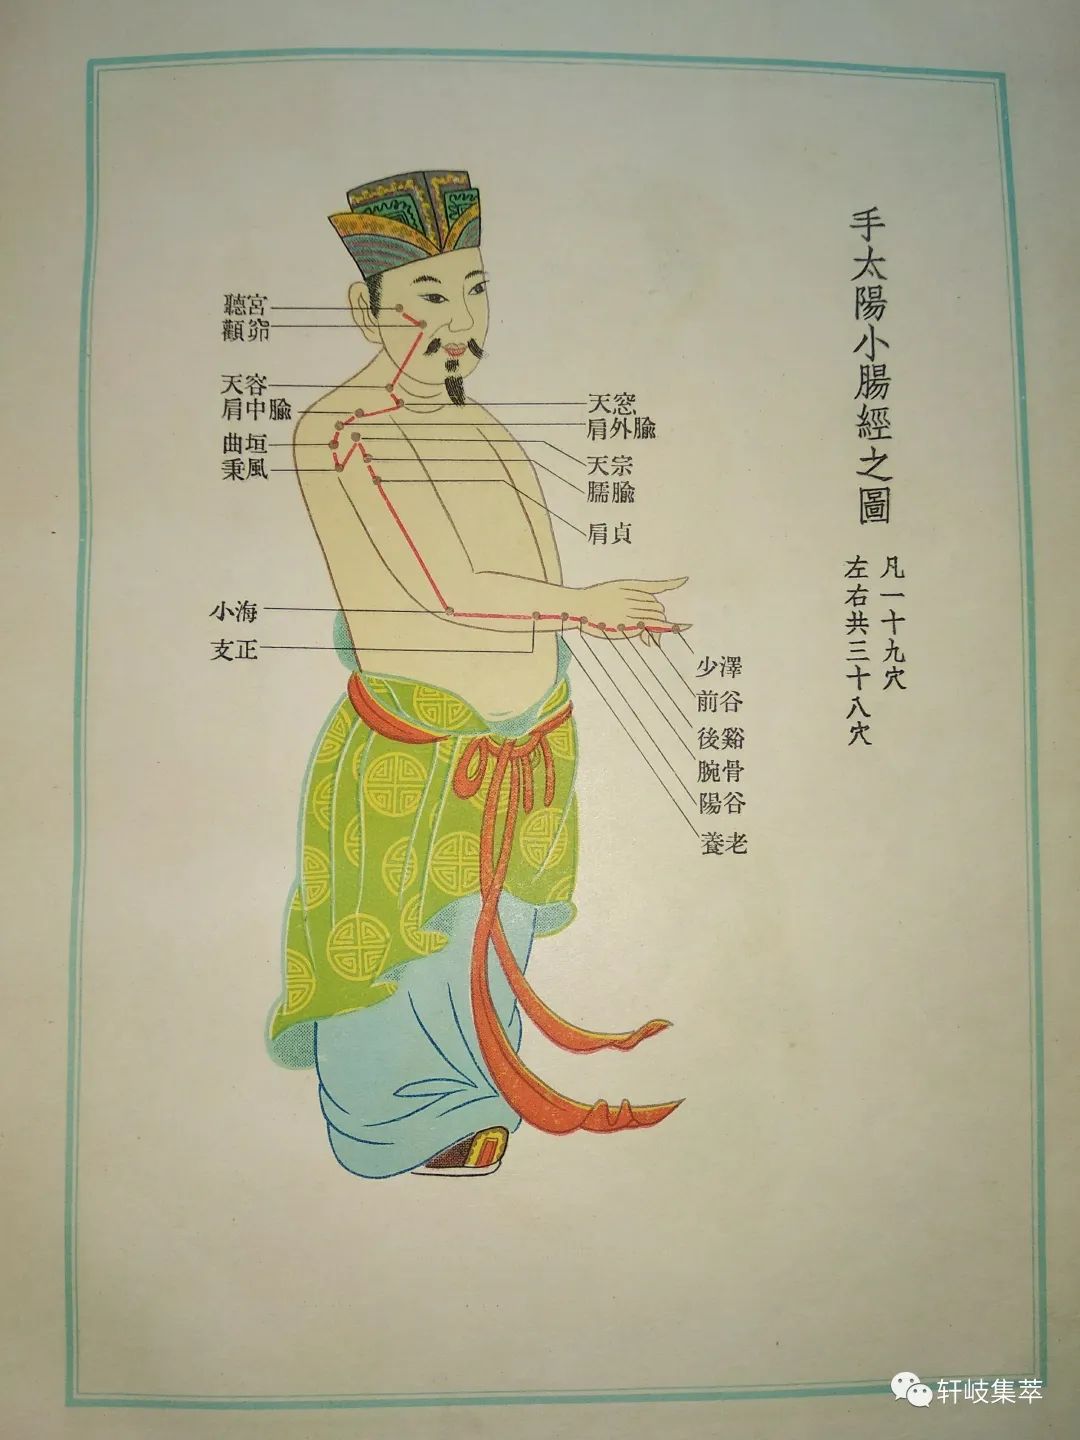 手太陽小腸經之圖
凡一十九穴
左右共三十八穴
聽宮
顴窌
天容
肩中腧
曲垣
秉風
小海
支正
天窓
肩外腧
天宗
臑腧
肩貞
少澤
前谷
後谿
腕骨
陽谷
養老
轩岐集萃